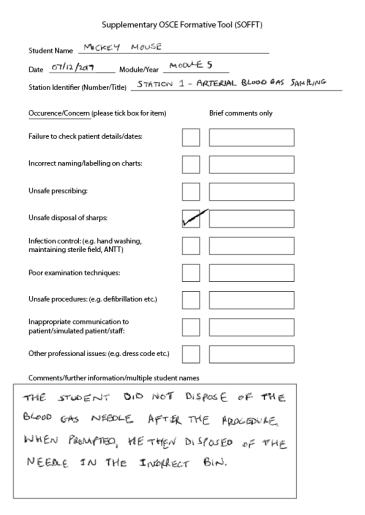 Supplementary OSCE Formative Tool (SOFFT)
Student Name MICKEY MOUSE
Date 07/12/2017 Module/Year MODULE 5
Station Identifier (Number/Title) STATION 1 - ARTERIAL BLOOD GAS SAMPLING
Occurence/Concern (please tick box for item) Brief comments only
Failure to check patient details/dates:
Incorrect naming/labelling on charts:
Unsafe prescribing:
Unsafe disposal of sharps:
Infection control: (e.g. hand washing,
maintaining sterile field, ANTT)
Poor examination techniques:
Unsafe procedures: (e.g. defibrillation etc.)
Inappropriate communication to
patient/simulated patient/staff:
Other professional issues: (e.g. dress code etc.)
Comments/further information/multiple student names
THE STUDENT DID NOT DISPOSE OF THE
BLOOD GAS NEEDLE AFTER THE PROCEDURE.
WHEN PROMPTED, HE THEN DISPOSED OF THE
NEEDLE IN THE INCORRECT BIN.